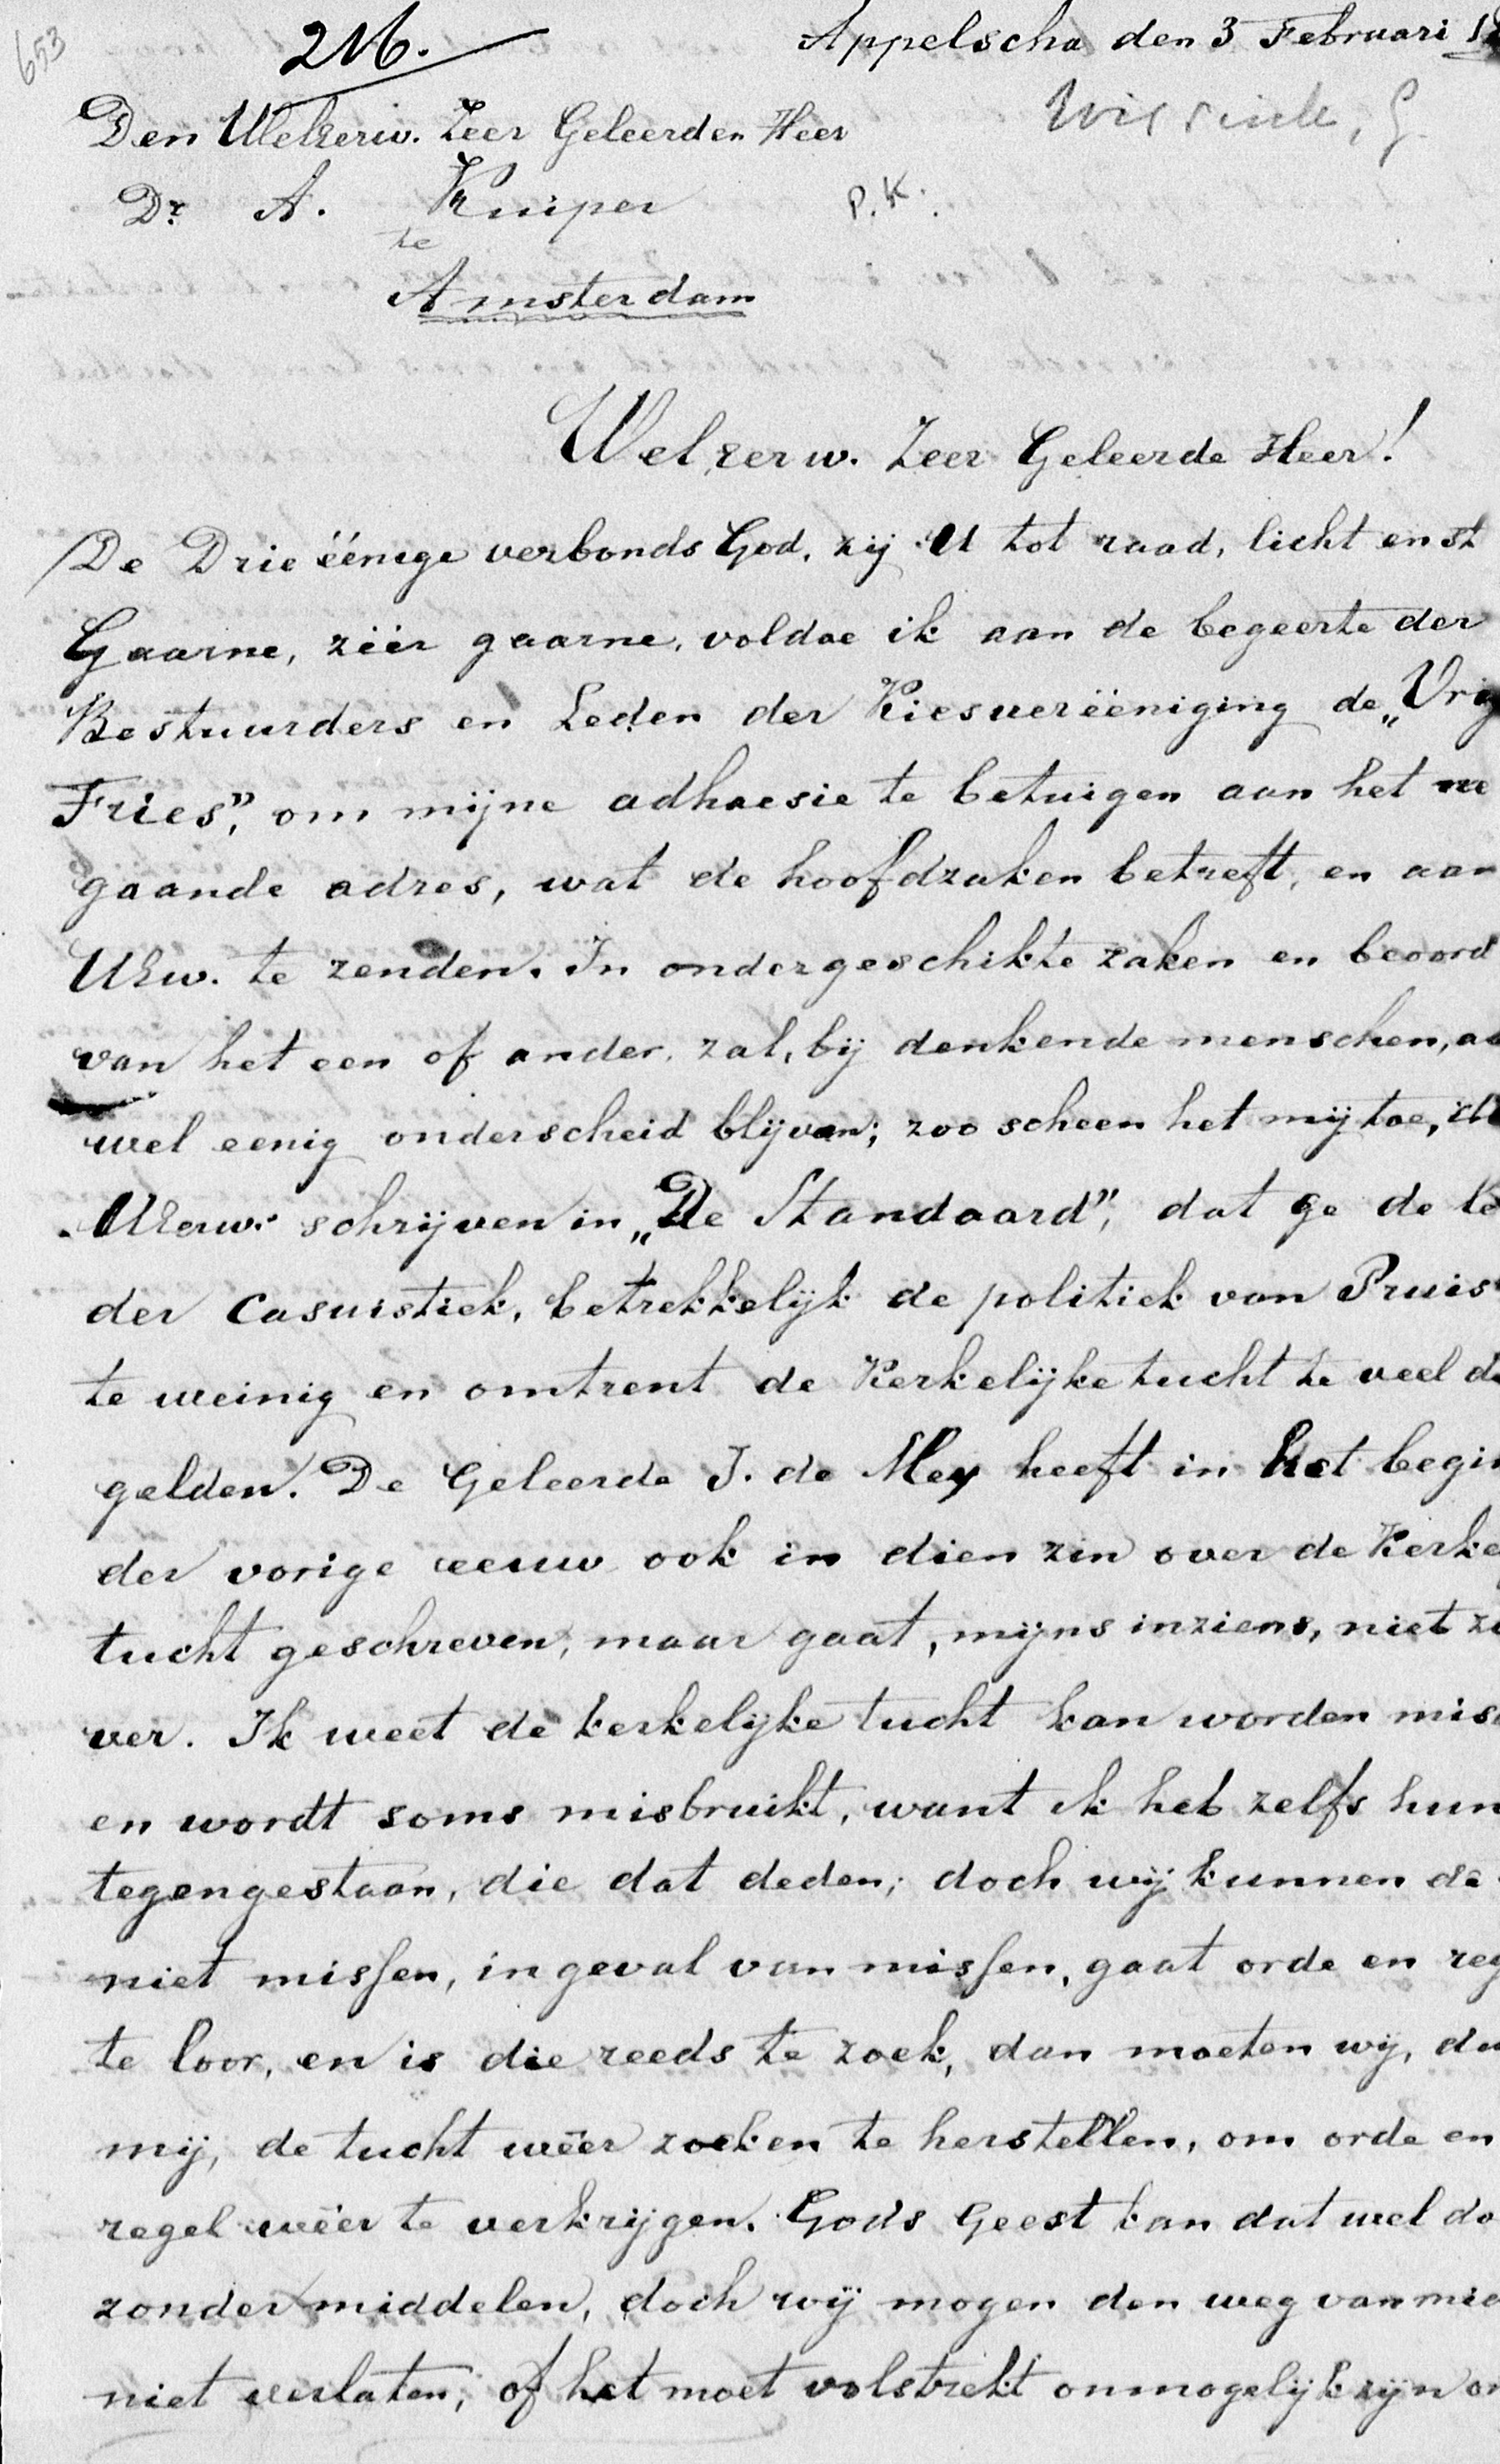 653
216.
Appelscha den 3 Februari
Den Welzerw. Zeer Geleerden Heer
Dr. A. Kuiper
P.K.
te
Amsterdam
Welzerw. Zeer Geleerde Heer!
De Drieéénige verbonds God, zij U tot raad, licht en st
Gaarne, zéér gaarne, voldoe ik aan de begeerte der
Bestuurders en Leden der Kiesveréëniging de „Vrij
Fries”, om mijne adhaesie te betuigen aan het ne
gaande adres, wat de hoofdzaken betreft, en aan
UEw. te zenden. In ondergeschikte zaken en beoord
van het een of ander, zal, bij denkende menschen,
wel eenig onderscheid blijven; zoo scheen het mij toe,
schrijven in „De Standaard”, dat ge de
der Casuistiek, betrekkelijk de politiek van Pruis
te weinig en omtrent de Kerkelijke tucht te veel
gelden. De Geleerde J. de Mey heeft in het begin
der vorige eeuw ook in dien zin over de Kerke
tucht geschreven, maar gaat, mijns inziens, niet zo
ver. Ik weet de kerkelijke tucht kan worden mis
en wordt soms misbruikt, want ik heb zelfs hun
tegengestaan, die dat deden; doch wij kunnen de
niet missen, in geval van missen, gaat orde en reg
te loor, en is die reeds te zoek, dan moeten wij, du
mij, de tucht wéér zoeken te herstellen, om orde en
regel wéér te verkrijgen. Gods Geest kan dat wel do
zonder middelen, doch wij mogen den weg van mid
niet verlaten; of het moet volstrekt onmogelijk zijn om